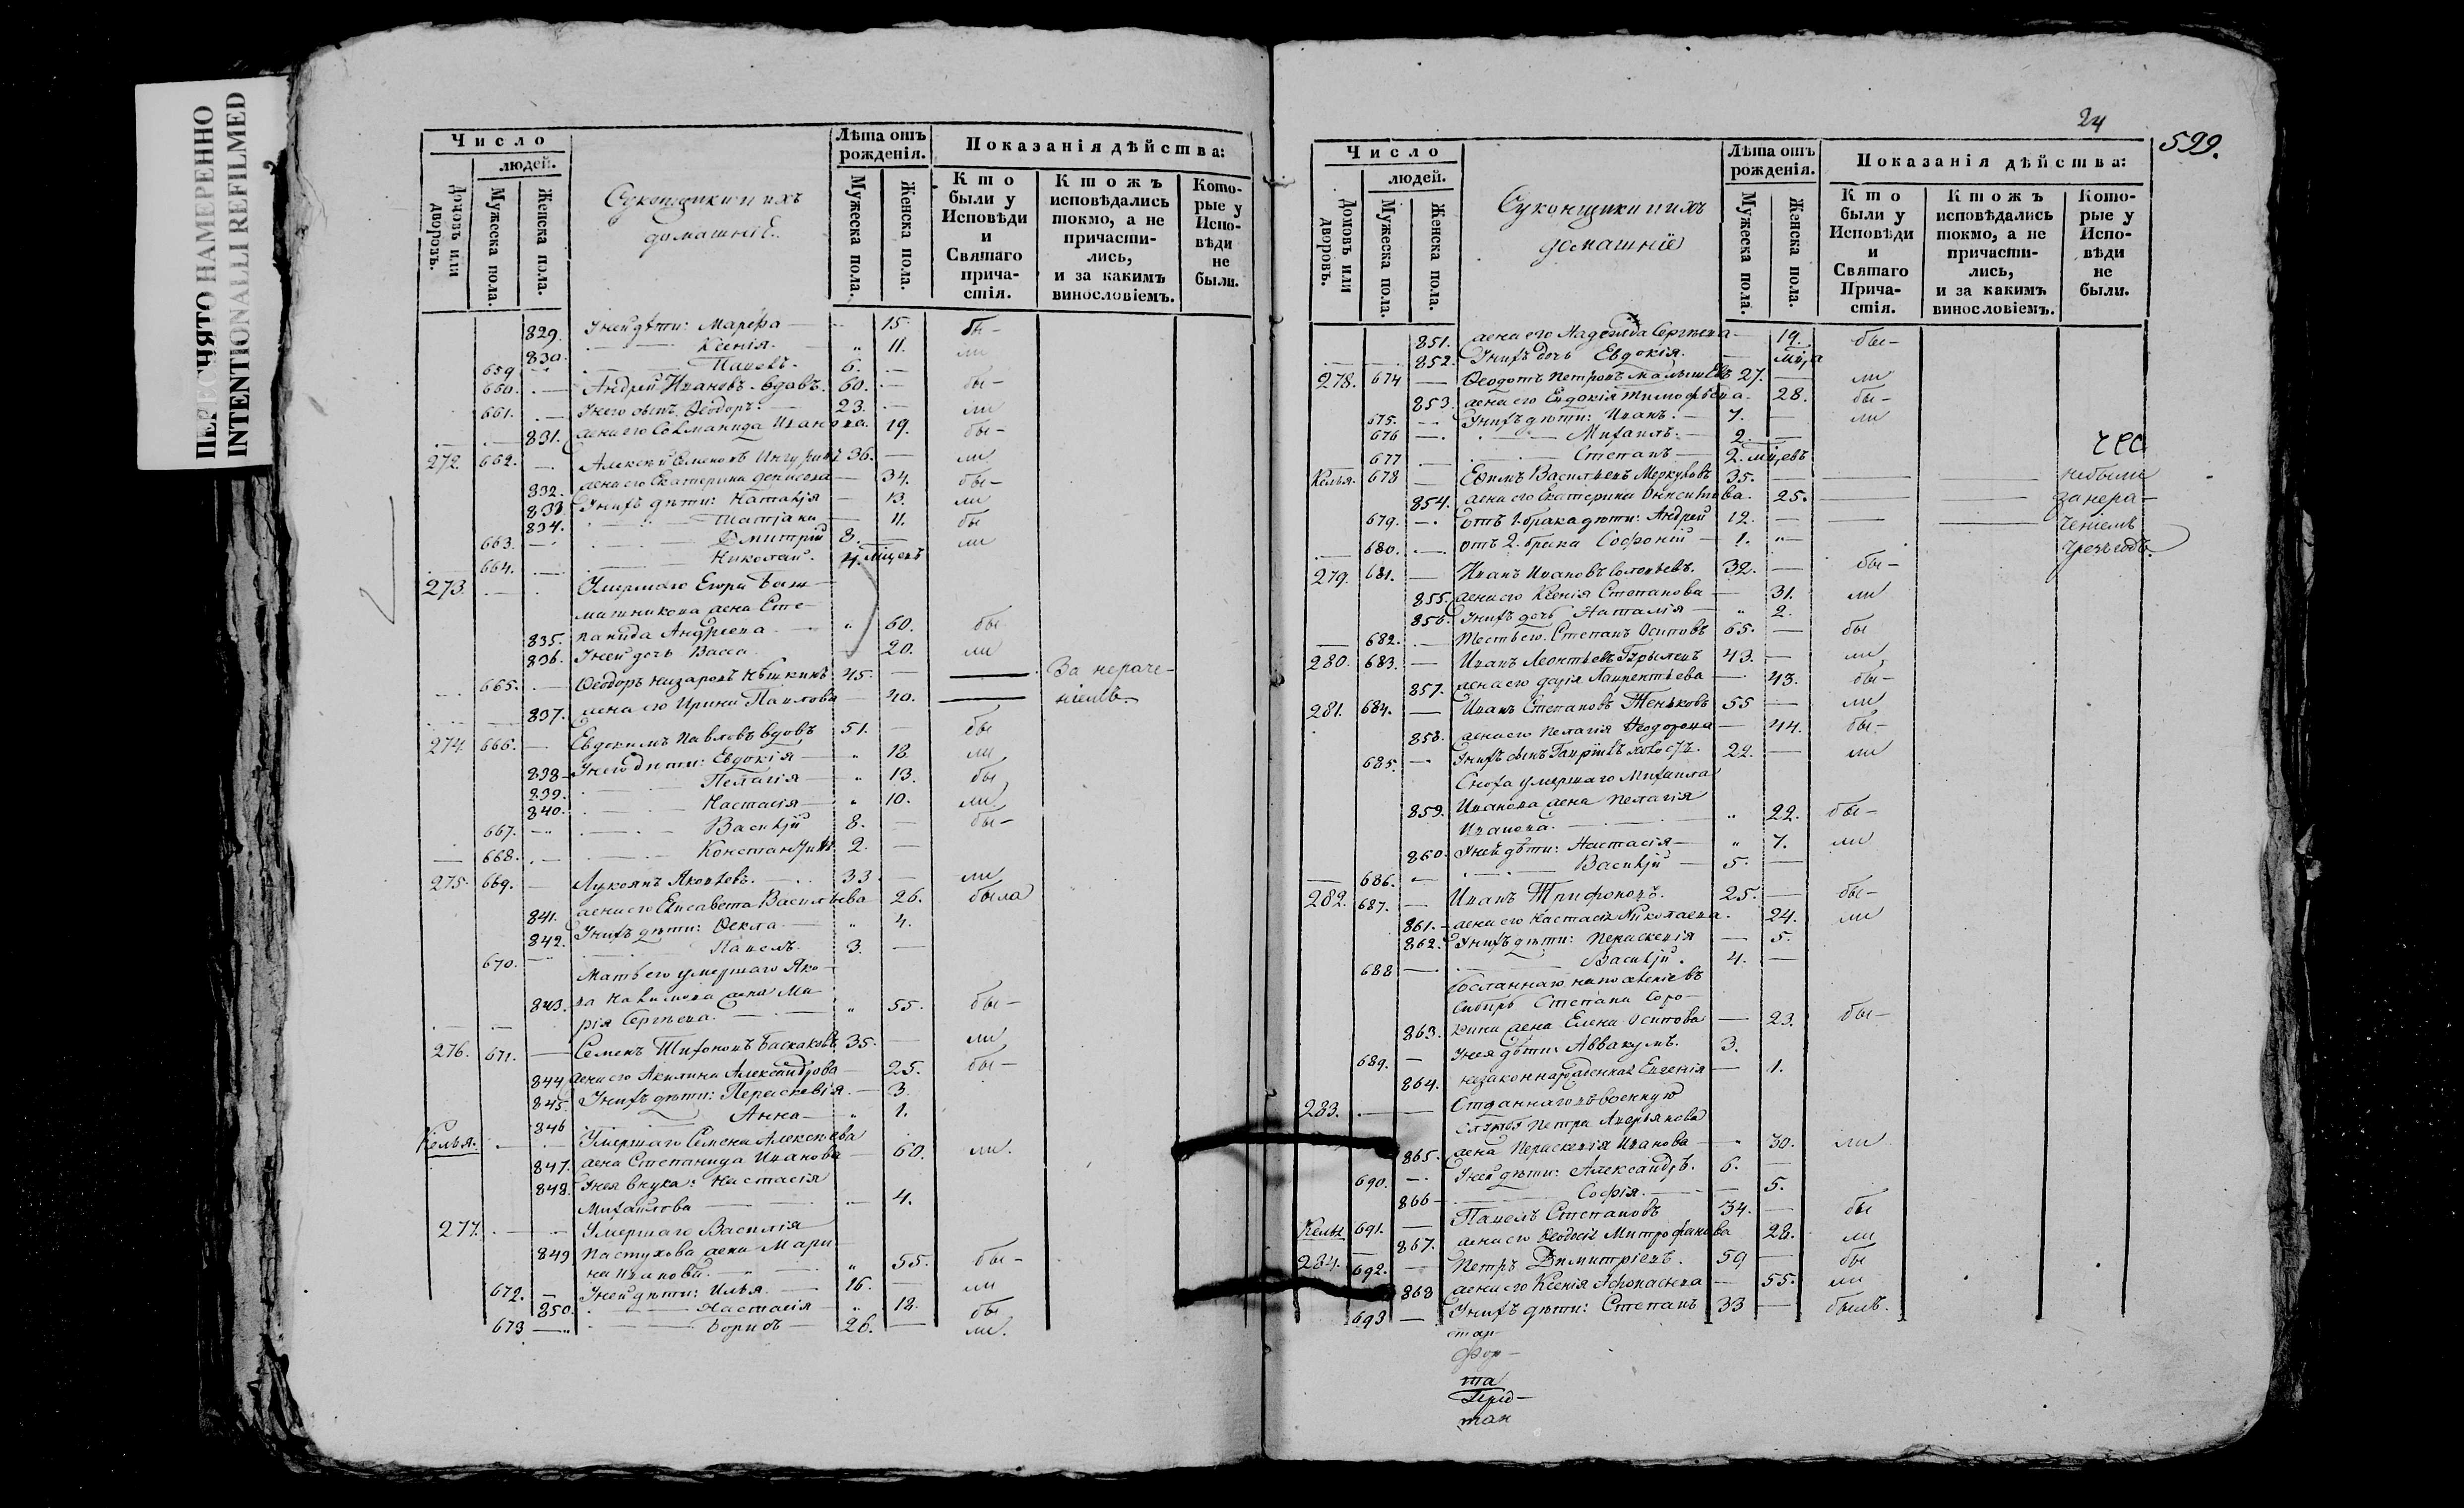 ПЕРЕСНЯТО НАМЕРЕННО
INTENTIONALLI REFILMED
Число
людей.
Домовъ или дворовъ.
Мужеска пола.
Женска пола.
Суконщики и ихъ
домашніе.
Лѣта отъ рожденія.
Мужеска пола.
Женска пола.
Показанія дѣйства:
Кто были у Исповѣди и Святаго причастія.
Ктожъ исповѣдались токмо, а не причастились, и за какимъ винословіемъ.
Которые у Исповѣди не были.
829. У ней дѣти: Марѳа — 15. бы-
830. Ксенія. 11. ли
659 Павелъ. 6.
660. Андрей Ивановъ вдовъ. 60. бы-
661. У него сынъ Ѳеодоръ: 23. ли
831. жена его Соломанида Иванова. 19. бы-
272. 662. Алексѣй Семеновъ 36. ли
832. жена его Екатерина Денисова 34. бы-
833. У нихъ дѣти: Наталія 13. ли
834. Татіана 11. бы
663. Дмитрій 8. ли
664. Николай. 4. мѣсецъ
273. Умершаго Егора Баш-
машникова жена Сте-
835. панида Андреева 60. бы
836. У ней дочь Васса 20. ли
665. Ѳеодоръ Назаровъ 45. За нераче-
837. жена его Ирина Павлова 40. ніемъ.
274. 666. Евдокимъ Павловъ вдовъ 51. бы
838. У него дѣти: Евдокія 18. ли
839. Пелагія 13. бы
840. Настасія 10. ли
667. Василій 8. бы-
668. Константинъ. 2.
275. 669. Лукоянъ Яковлевъ. 33. ли
841. жена его Елисавета Васильева 26. была
842. У нихъ дѣти: Ѳекла 4.
670. Павелъ. 3.
Мать его умершаго Яко-
843. ва жена Ма-
рія Сергѣева. 55. бы-
276. 671. Семенъ Тихоновъ Баскаковъ 35. ли
844 жена его Акилина Александрова 25. бы-
845. У нихъ дѣти: Параскевія. 3.
846 Анна 1.
Келья. Умершаго Семена Алексѣева
847. жена Степанида Иванова 60. ли.
848. У нея внука: Настасія
Михайлова 4.
277. Умершаго Василія
849 Пастухова жена Мари-
на Иванова. 55. бы-
672. У ней дѣти: Илья. 16. ли
850. Настасія 18. бы
673 Борисъ 26. ли.
24
599.
Число
людей.
Домовъ или дворовъ.
Мужеска пола.
Женска пола.
Суконщики и ихъ
домашніе
Лѣта отъ рожденія.
Мужеска пола.
Женска пола.
Показанія дѣйства:
Кто были у Исповѣди и Святаго Причастія.
Ктожъ исповѣдались токмо, а не причастились, и за какимъ винословіемъ.
Которые у Исповѣди не были.
851. жена его Надежда Сергѣева 19. бы-
852. У нихъ дочь Евдокія.
278. 674 Ѳеодотъ Петровъ Малышевъ 27. ли
853. жена его Евдокія Тимофѣева. 28. бы-
675. У нихъ дѣти: Иванъ. 7. ли
676 Михаилъ. 2.
677 Степанъ 2. мѣсецъ
Келья. 678 Ефимъ Васильевъ Меркуловъ 35. небыли
854. жена его Екатерина Онисимова. 25. за нера-
679. отъ 1. брака дѣти: Андрей 12. ченіемъ
680. отъ 2. брака Софоній 1. чрезъ годъ.
279. 681. Иванъ Ивановъ Соловьевъ. 32. бы-
855. жена его Ксенія Степанова 31. ли
856. У нихъ дочь Наталія 2.
682. Тесть его Степанъ Осиповъ 65. бы
280. 683. Иванъ Леонтьевъ 43. ли
857. жена его Дарія Лаврентьева 43. бы-
281. 684. Иванъ Степановъ Теньковъ 55 ли
858. жена его Пелагія Ѳеодорова 44. бы-
685. У нихъ сынъ Гаврiилъ холостъ. 22. ли
Сноха умершаго Михаила
859. Иванова жена Пелагія
Иванова. 22. бы-
860. У ней дѣти: Настасія 7. ли
686. Василій 5.
282. 687. Иванъ Трифоновъ. 25. бы-
861. жена его Настасія Николаева. 24. ли
862. У нихъ дѣти: Параскевія 5.
688 Василій. 4.
Сосланнаго на поселеніе въ
Сибирь Степана Соро-
863. кина жена Елена Осипова 23. бы-
689. У нея дѣти: Аввакумъ. 3.
864. незаконнорожденная Евгенія 1.
283. Отданнаго въ военную
службу Петра Аверьянова
865. жена Параскевія Иванова 30. ли
690. У ней дѣти: Александръ. 6.
866 Софія. 5.
Келья 691. Павелъ Степановъ 34. бы
867. жена его Ѳеодосія Митрофанова 28. ли
284. 692. Петръ Димитріевъ. 59 бы
868 жена его Ксенія Афонасьева 55. ли
693 У нихъ дѣти: Степанъ 33 былъ.